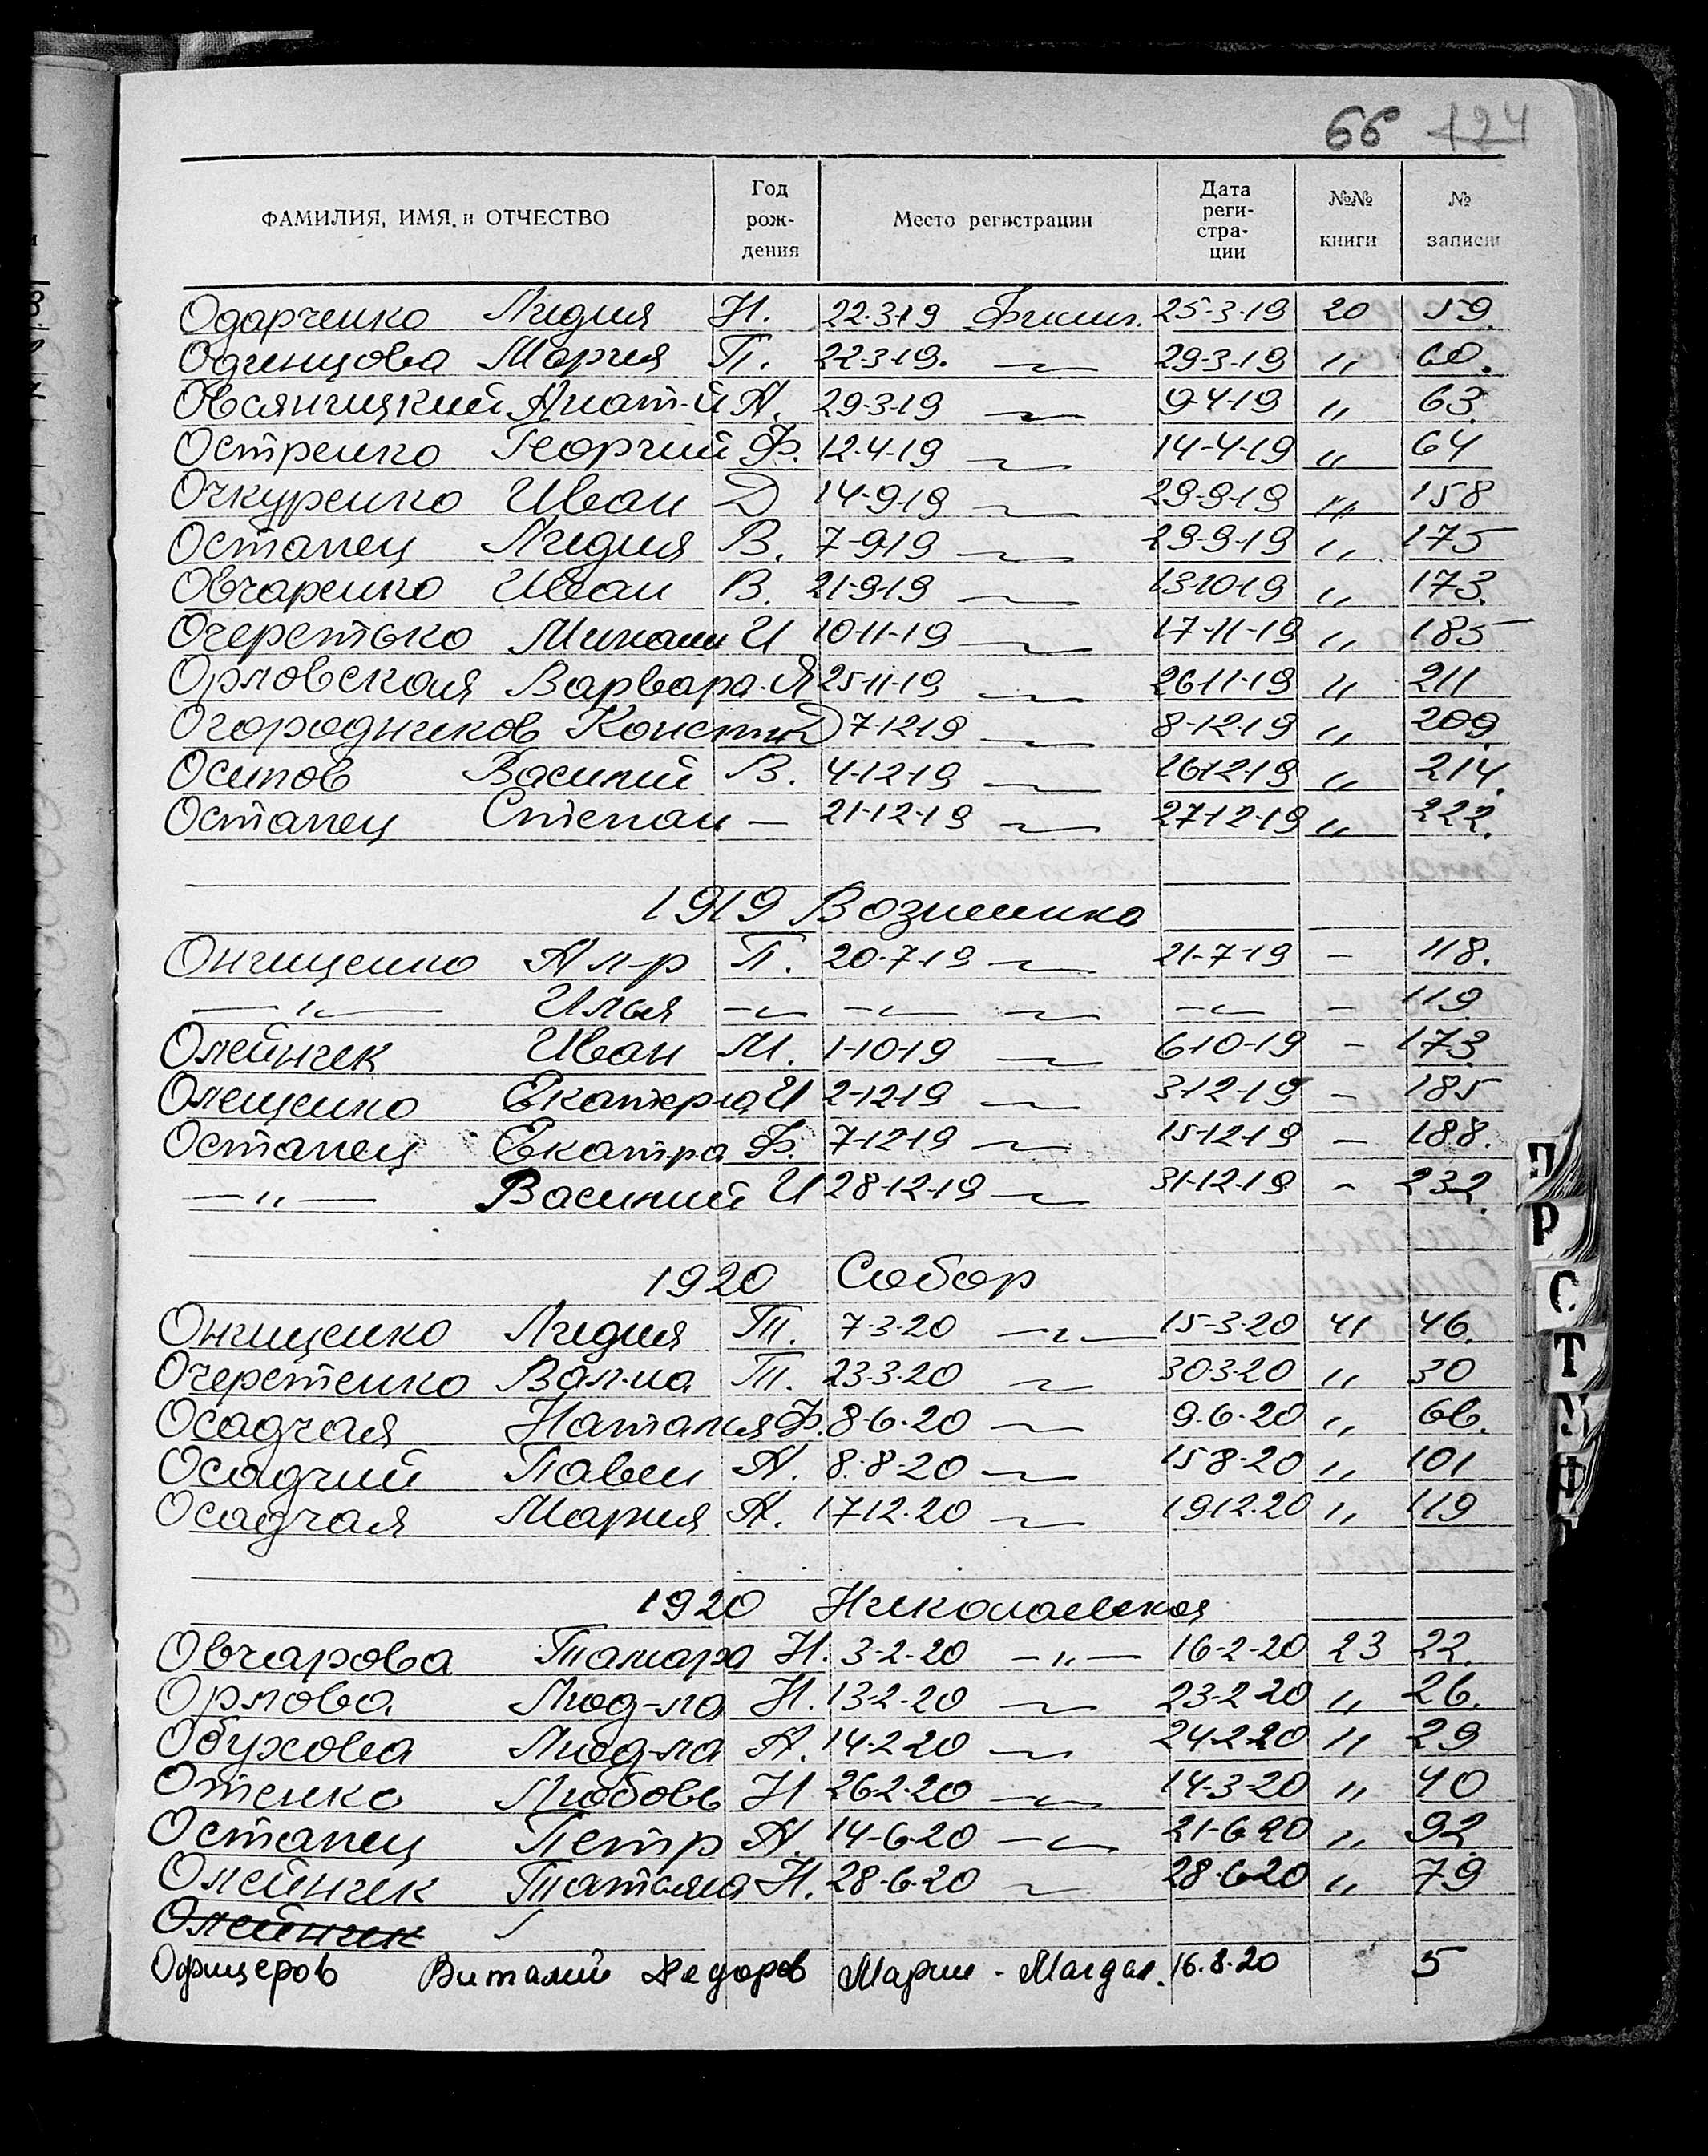 66 124
ФАМИЛИЯ, ИМЯ, и ОТЧЕСТВО Год рож-дения Место регистрации Дата реги-стра-ции №№ книги № записи
Одарченко Лидия Н. 22.3-19 25-3-19 20 59.
Одинцова Мария П. 22-3-19. —〃— 29-3-19 〃 60.
Овсяницкий Анат-й А. 29-3-19 —〃— 9-4-19 〃 63.
Остренко Георгий Ф. 12-4-19 —〃— 14-4-19 〃 64
Очкуренко Иван Д 14-9-19 —〃— 29-9-19 〃 158
Останец Лидия В. 7-9-19 —〃— 29-9-19 〃 175
Овчаренко Иван В. 21-9-19 —〃— 13-10-19 〃 173.
Очеретько Михаил И 10-11-19 —〃— 17-11-19 〃 185
Орловская Варвара Я 25-11-19 —〃— 26-11-19 〃 211
Огородников Констин Д 7-12-19 —〃— 8-12-19 〃 209.
Осипов Василий В. 4-12-19 —〃— 16-12-19 〃 214.
Останец Степан — 21-12-19 —〃— 27-12-19 〃 222.
1919 Вознесенка
Онищенко Ал-р П. 20-7-19 —〃— 21-7-19 — 118.
—〃— Илья —〃— —〃— —〃— —〃— — 119.
Олейник Иван М. 1-10-19 —〃— 6-10-19 — 173
Олещенко Екатер-на И 2-12-19 —〃— 3-12-19 — 185
Останец Екат-ра Ф. 7-12-19 —〃— 15-12-19 — 188.
—〃— Василий И 28-12-19 —〃— 31-12-19 — 232.
1920 Собор
Онищенко Лидия Т. 7-3-20 —〃— 15-3-20 41 46.
Очеретенко Вал-на Т. 23-3-20 —〃— 30-3-20 〃 30
Осадчая Наталья Ф. 8-6-20 —〃— 9-6-20 〃 66.
Осадчий Павел А. 8-8-20 —〃— 15-8-20 〃 101
Осадчая Мария А. 17-12-20 —〃— 19-12-20 〃 119
1920 Николаевская
Овчарова Тамара Н. 3-2-20 —〃— 16-2-20 23 22.
Орлова Люд-ла Н. 13-2-20 —〃— 23-2-20 〃 26.
Обухова Люд-ла А. 14-2-20 —〃— 24-2-20 〃 29
Отенко Любовь Н 26-2-20 —〃— 14-3-20 〃 40
Останец Петр А. 14-6-20 —〃— 21-6-20 〃 92
Олейник Татьяна Н. 28-6-20 —〃— 28-6-20 〃 79
Олейник
Офицеров Виталий Федоров Марии-Магдал. 16.8.20 5
П
Р
С
Т
У
Ф